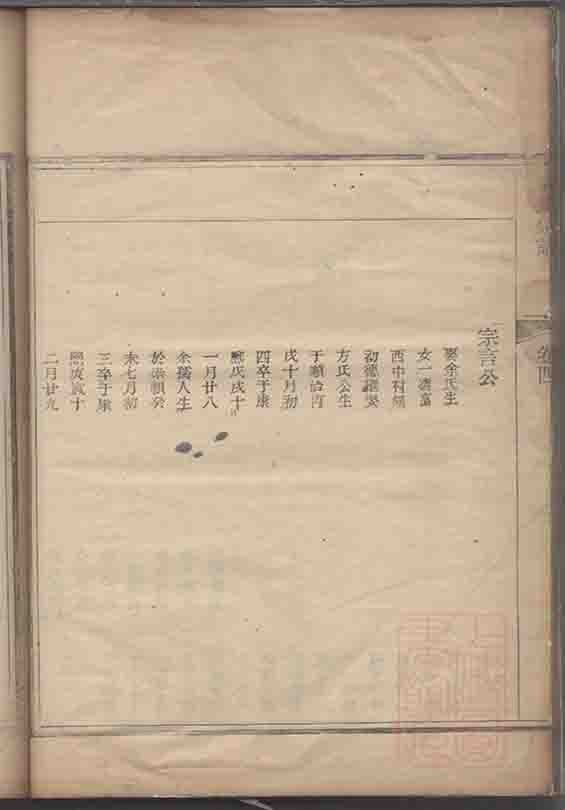 卷四
宗言公
娶余氏生
女一適富
西中村

方氏公生
于順治丙
戌十月初
四卒于康
熙戊戌十
一月廿八
余孺人生
於崇禎癸
未七月初
三卒于康
熙庚寅十
二月廿九